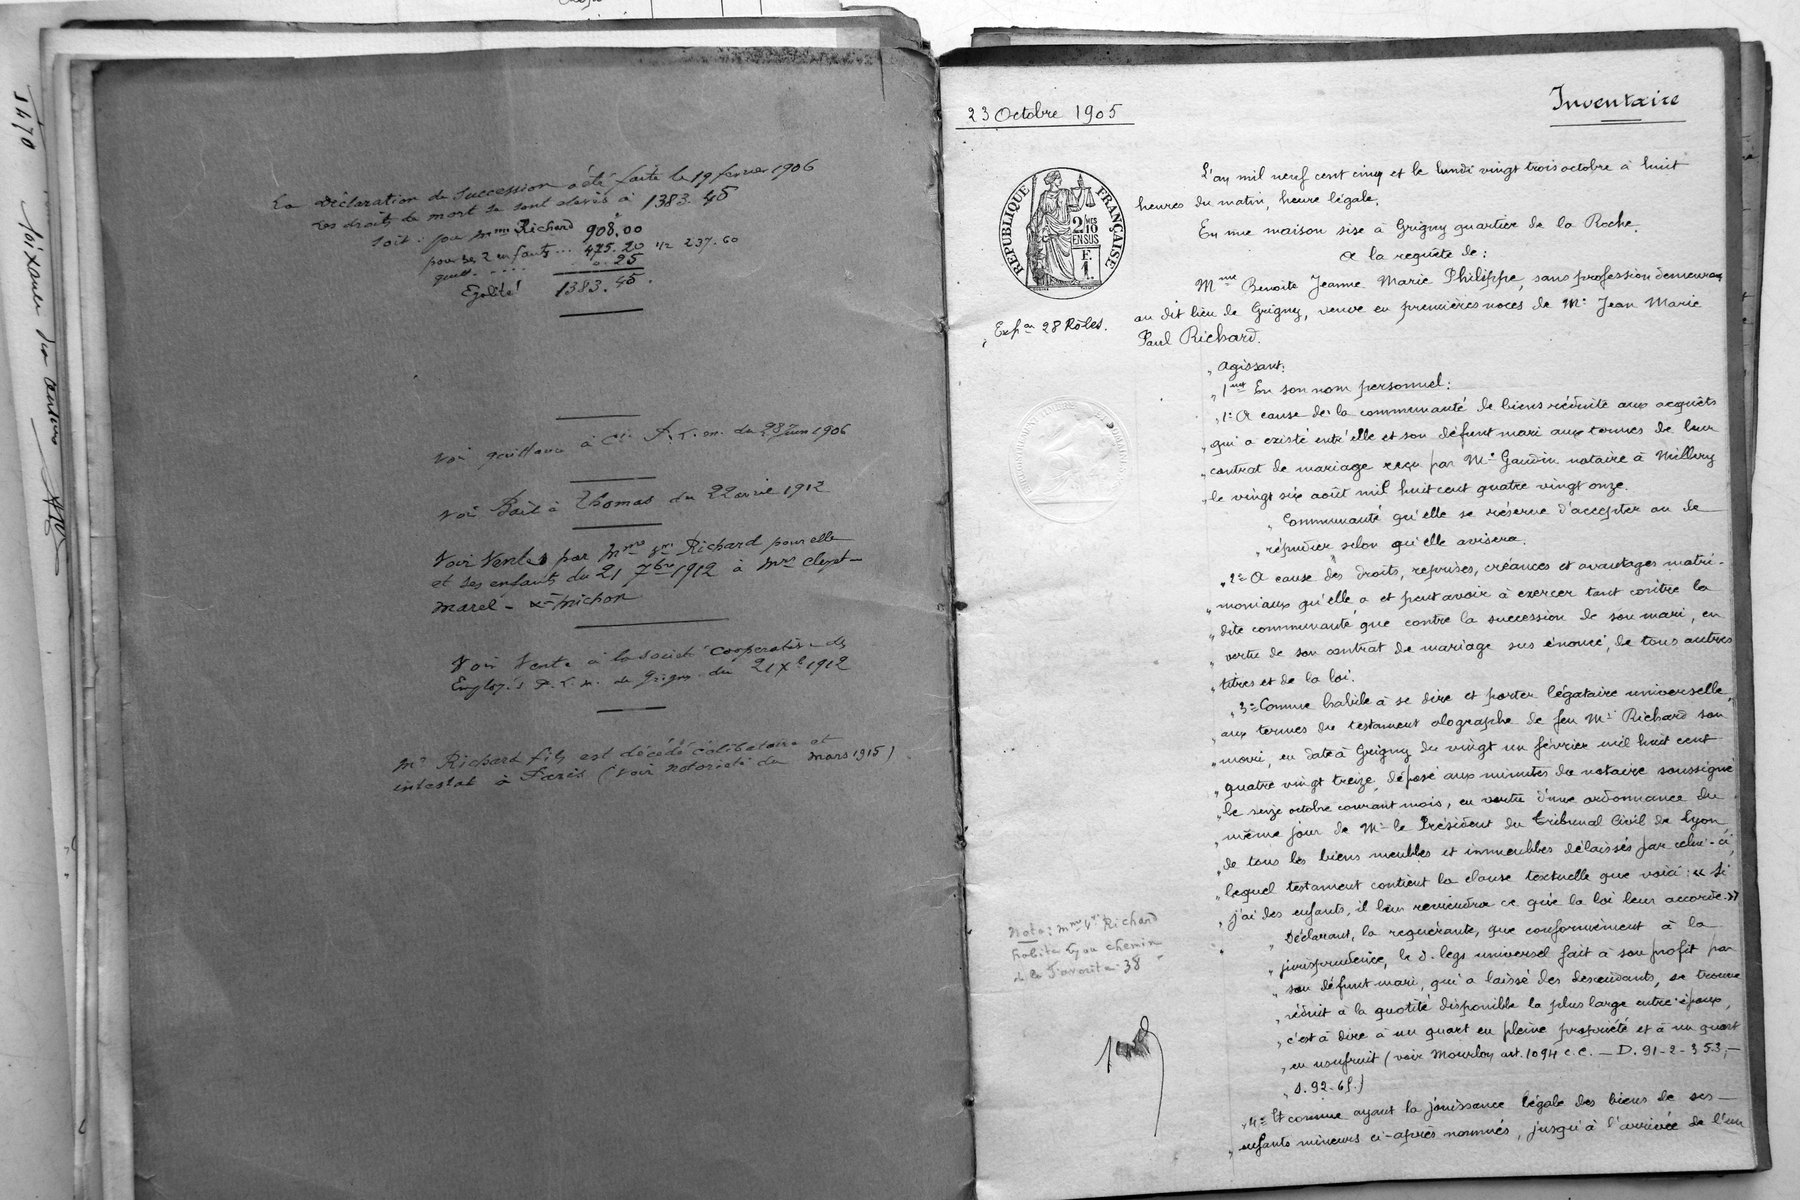 La Déclaration de Succession a été faite le 19 fevrier 1906
Les droits de mort se sont élevés à 1383.45
Soit: pour Mme Richard 908.00
pour ses 2 enfants... 475.20 1/2 237.60
quitt. .... 0.25
Egalité 1383.45.
Voir quittance à Cie P.L.M. du 23 Juin 1906
Voir Bail à Thomas du 22 avril 1912
Voir Vente par Mme Vve Richard pour elle
et ses enfants du 21 7bre 1912 à Mr
Voir Vente à la Société Coopérative des
Employés P.L.M. de Grigny du 21 Xe 1912
Mr Richard fils est décédé célibataire et
intestat à Paris (voir notoriété du mars 1915)
23 Octobre 1905
Inventaire
RÉPUBLIQUE FRANÇAISE
2/10 MES
EN SUS
F.
1.
Expon 28 Rôles.
L'an mil neuf cent cinq et le lundi vingt trois octobre à huit
heures du matin, heure légale,
En une maison sise à Grigny quartier de la Roche,
A la requête de:
Mme Benoite Jeanne Marie Philippe, sans profession demeurant
au dit lieu de Grigny, veuve en premières noces de Mr Jean Marie
Paul Richard.
„ Agissant:
„ 1ent En son nom personnel:
„ 1º A cause de la communauté de biens réduite aux acquêts
„ qui a existé entr'elle et son défunt mari aux termes de leur
„ contrat de mariage reçu par Me Gaudin notaire à Millery
„ le vingt six août mil huit cent quatre vingt onze.
„ Communauté qu'elle se réserve d'accepter ou de
„ répudier selon qu'elle avisera.
„ 2º A cause des droits, reprises, créances et avantages matri-
„ moniaux qu'elle a et peut avoir à exercer tant contre la
„ dite communauté que contre la succession de son mari, en
„ vertu de son contrat de mariage sus énoncé, de tous autres
„ titres et de la loi.
„ 3º Comme habile à se dire et porter légataire universelle
„ aux termes du testament olographe de feu Mr Richard son
„ mari, en date à Grigny du vingt un février mil huit cent
„ quatre vingt treize, déposé aux minutes du notaire soussigné
„ le seize octobre courant mois, en vertu d'une ordonnance du
„ même jour de Mr le Président du Tribunal Civil de Lyon
„ de tous les biens meubles et immeubles délaissés par celui-ci,
„ lequel testament contient la clause textuelle que voici: « Si
„ j'ai des enfants, il leur reviendra ce que la loi leur accorde. »
„ Déclarant, la requérante, que conformément à la
„ jurisprudence, le d. legs universel fait à son profit par
„ son défunt mari, qui a laissé des descendants, se trouve
„ réduit à la quotité disponible la plus large entre époux,
„ c'est à dire à un quart en pleine propriété et à un quart
„ en usufruit (voir Mourlon art. 1094 c.c. — D. 91-2-353, —
„ S. 92.61.)
„ 4º Et comme ayant la jouissance légale des biens de ses —
„ enfants mineurs ci-après nommés, jusqu'à l'arrivée de l'un
Nota: Mme Vve Richard
habite Lyon chemin
de la Favorite. 38